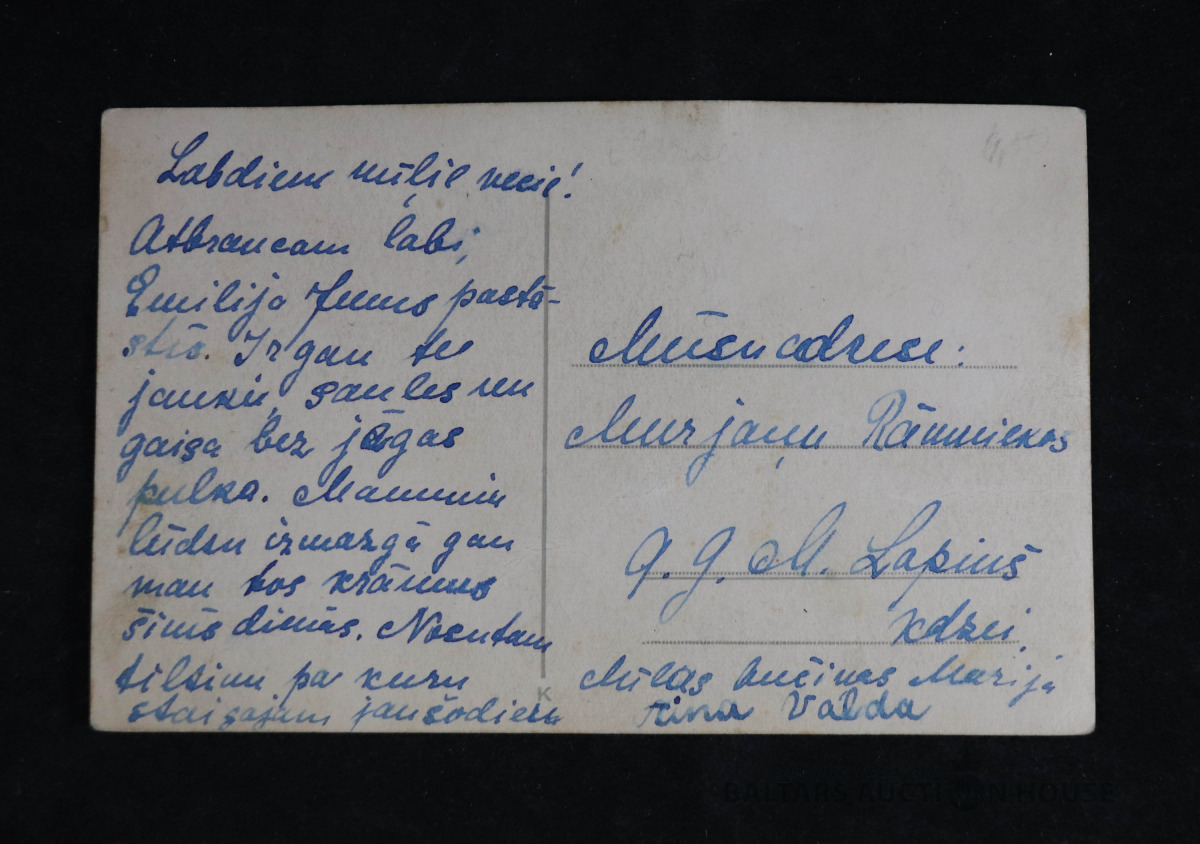 Labdien mīļie vecie!
Atbraucam labi,
Emilija Jums pastā-
stīs. Ir gan te
jauki, saules un
gaisa bez jēgas
pulka. Mammin
lūdzu izmazgā gan
man tos krāmus
šinīs dienās. Nosūtam
tiltiņu pa kuru
staigājam jau šodien
Mūsu adrese:
Murjaņu Rāmniekos
M. Lapiņš
kdzei
Mīļas bučiņas Marija
Aina Valda
K
BALTARS AUCTION HOUSE